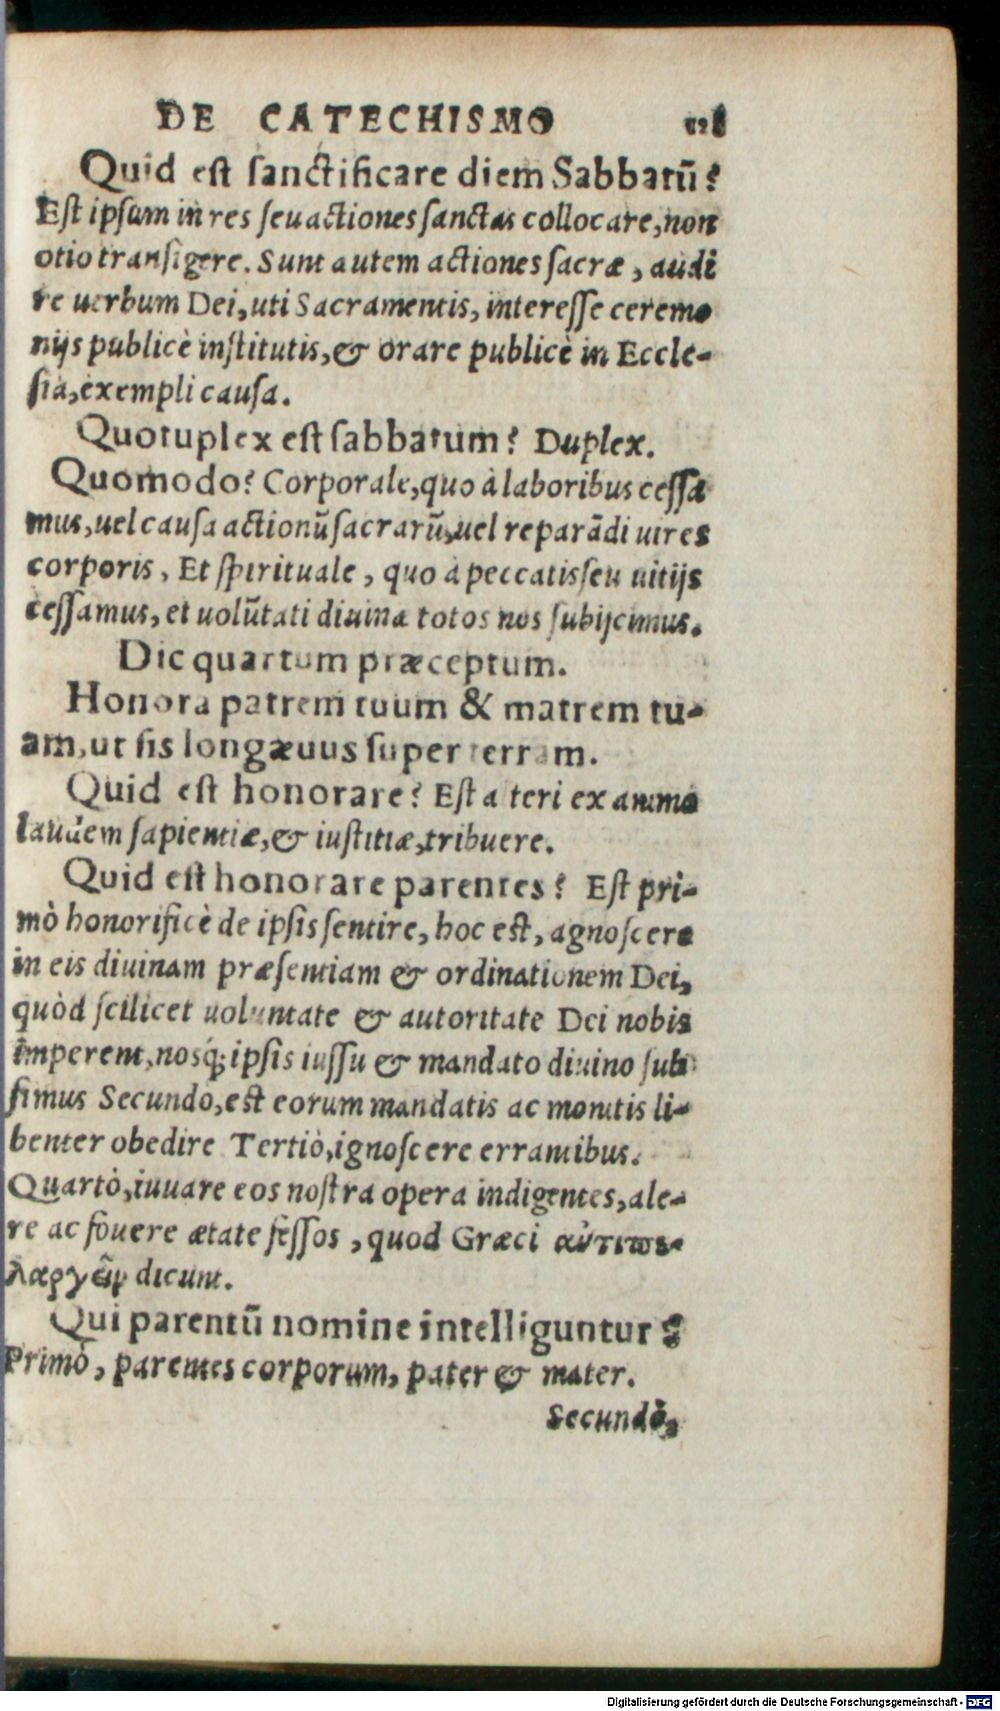 DE CATECHISMO
Quid est sanctificare diem Sabbatū?
Est ipsum in res seu actiones sanctas collocare, non
otio transigere. Sunt autem actiones sacræ, audi
re uerbum Dei, uti Sacramentis, interesse ceremo
nijs publicè institutis, & orare publicè in Eccle-
sia, exempli causa.
Quotuplex est sabbatum? Duplex.
Quomodo? Corporale, quo à laboribus cessa
mus, uel causa actionū sacrarū, uel reparādi uires
corporis, Et spirituale, quo à peccatis seu uitijs
cessamus, et uolūtati diuinæ totos nos subijcimus.
Dic quartum præceptum.
Honora patrem tuum & matrem tu-
am, ut sis longæuus super terram.
Quid est honorare? Est alteri ex animo
laudem sapientiæ, & iustitiæ, tribuere.
Quid est honorare parentes? Est pri-
mò honorificè de ipsis sentire, hoc est, agnoscere
in eis diuinam præsentiam & ordinationem Dei,
quòd scilicet uoluntate & autoritate Dei nobis
imperent, nosq́; ipsis iussu & mandato diuino sub
simus Secundo, est eorum mandatis ac monitis li-
benter obedire Tertiò, ignoscere errantibus.
Quartò, iuuare eos nostra opera indigentes, ale-
re ac fouere ætate fessos, quod Græci ἀντιπε-
λαργεῖν dicunt.
Qui parentū nomine intelliguntur?
Primò, parentes corporum, pater & mater.
Secundò,
Digitalisierung gefördert durch die Deutsche Forschungsgemeinschaft - DFG